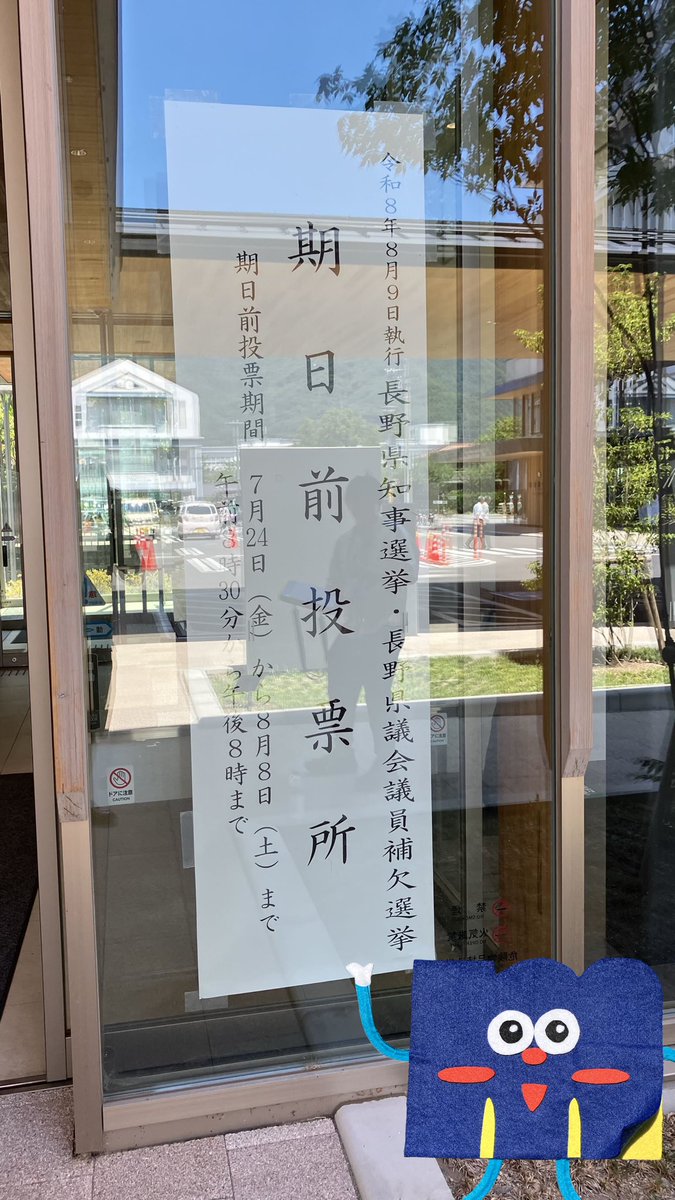 令和8年8月9日執行 長野県知事選挙・長野県議会議員補欠選挙
期日前投票所
期日前投票期間
7月24日(金)から8月8日(土)まで
午前8時30分から午後8時まで
ドアに注意
CAUTION